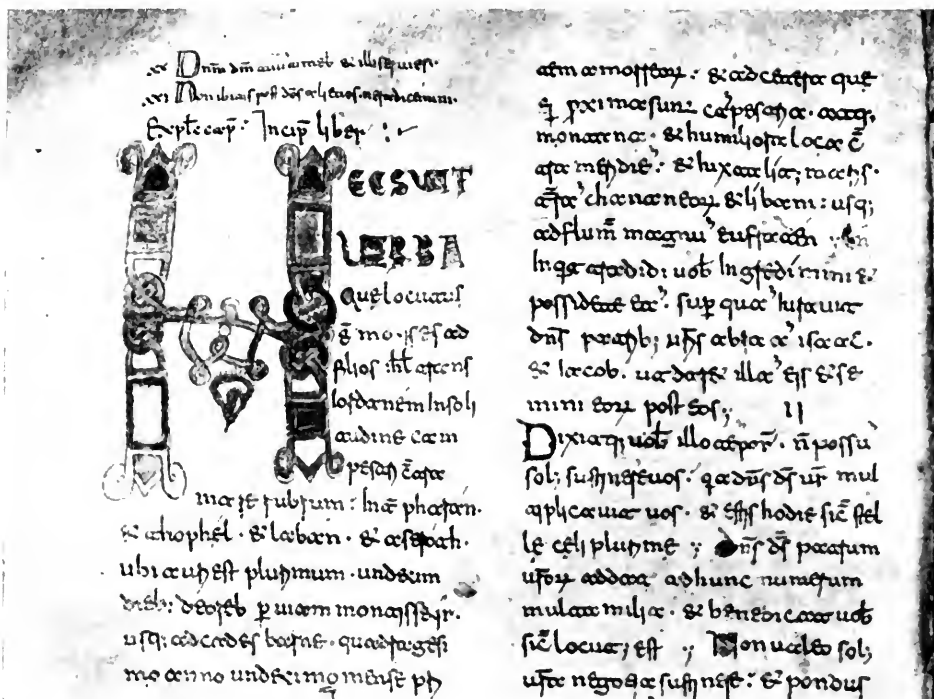 .xx Dnm dm
.xxi Non ibitis post dos alienos.
Explc cap̄. Incip̄ liber :
HEC SUNT
UERBA
quę locutus
ē moises ad
filios isr̄l trans
iordanem in soli
tudine cam
pestri c̄tra
mare rubrum: Int̄ pharan.
& thophel. & laban. & aseroth.
ubi auri est plurimum. undecim
dieb; de oreb p uiam montis seir.
usq; ad cades barne. quadragesi
mo anno undecimo mense pri
atm amorreorum. & ad cetera que
ei proximasunt campestria. atq;
montana. & humiliora loca c̄
tra meridie. & iuxta litt; maris.
t̄ra chananeorum & libani: usq;
ad flum̄ magnū eufraten. En
inq̄ tradidi uob̄ Ingredimini &
possidete ea. sup qua iurauit
dn̄s patrib; ur̄is abraā isaac.
& Iacob. ut daret illā eis & se
mini eorum post eos; II
Dixiq; uob̄ illo tempor̄. n̄ possū
sol; sustinere uos. q̄a dn̄s ds̄ ur̄ mul
tiplicauit uos. & estis hodie sic̄ stel
lę cęli plurimę ; Dn̄s ds̄ patrum
ur̄orum addat ad hunc numerum
multa milia. & benedicat uob̄
sic̄ locut; est ; Non ualeo sol;
ur̄a negotia sustinere: & pondus